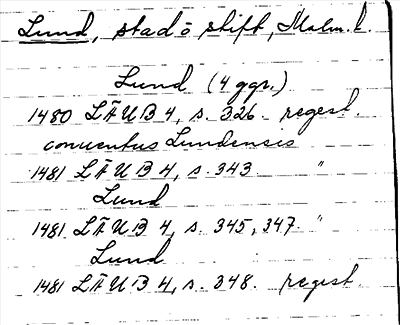 Lund, stad o stift, Malm. l.
Lund (4 ggr.)
1480 LÄUB 4, s. 326. regest.
conventus Lundensis
1481 LÄUB 4, s. 343 "
Lund
1481 LÄUB 4, s. 345, 347. "
Lund
1481 LÄUB 4, s. 348. regest